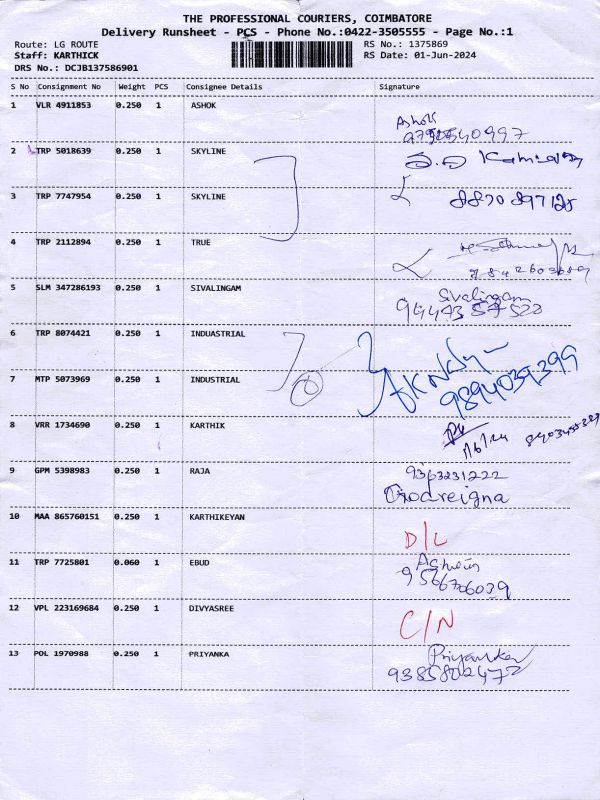 THE PROFESSIONAL COURIERS, COIMBATORE
Delivery Runsheet - PCS - Phone No.:0422-3505555 - Page No.:1
Route: LG ROUTE
Staff: KARTHICK
DRS No.: DCJB137586901
RS No.: 1375869
RS Date: 01-Jun-2024
S No Consignment No Weight PCS Consignee Details Signature
1 VLR 4911853 0.250 1 ASHOK
Ashok
2 TRP 5018639 0.250 1 SKYLINE
3 TRP 7747954 0.250 1 SKYLINE
4 TRP 2112894 0.250 1 TRUE
5 SLM 347286193 0.250 1 SIVALINGAM
Sivalingam
6 TRP 8074421 0.250 1 INDUASTRIAL
7 MTP 5073969 0.250 1 INDUSTRIAL
9894039399
8 VRR 1734690 0.250 1 KARTHIK
9 GPM 5398983 0.250 1 RAJA
9363231222
10 MAA 865760151 0.250 1 KARTHIKEYAN
D/L
11 TRP 7725801 0.060 1 EBUD
9566706039
12 VPL 223169684 0.250 1 DIVYASREE
C/N
13 POL 1970988 0.250 1 PRIYANKA
Priyanka
9385802472